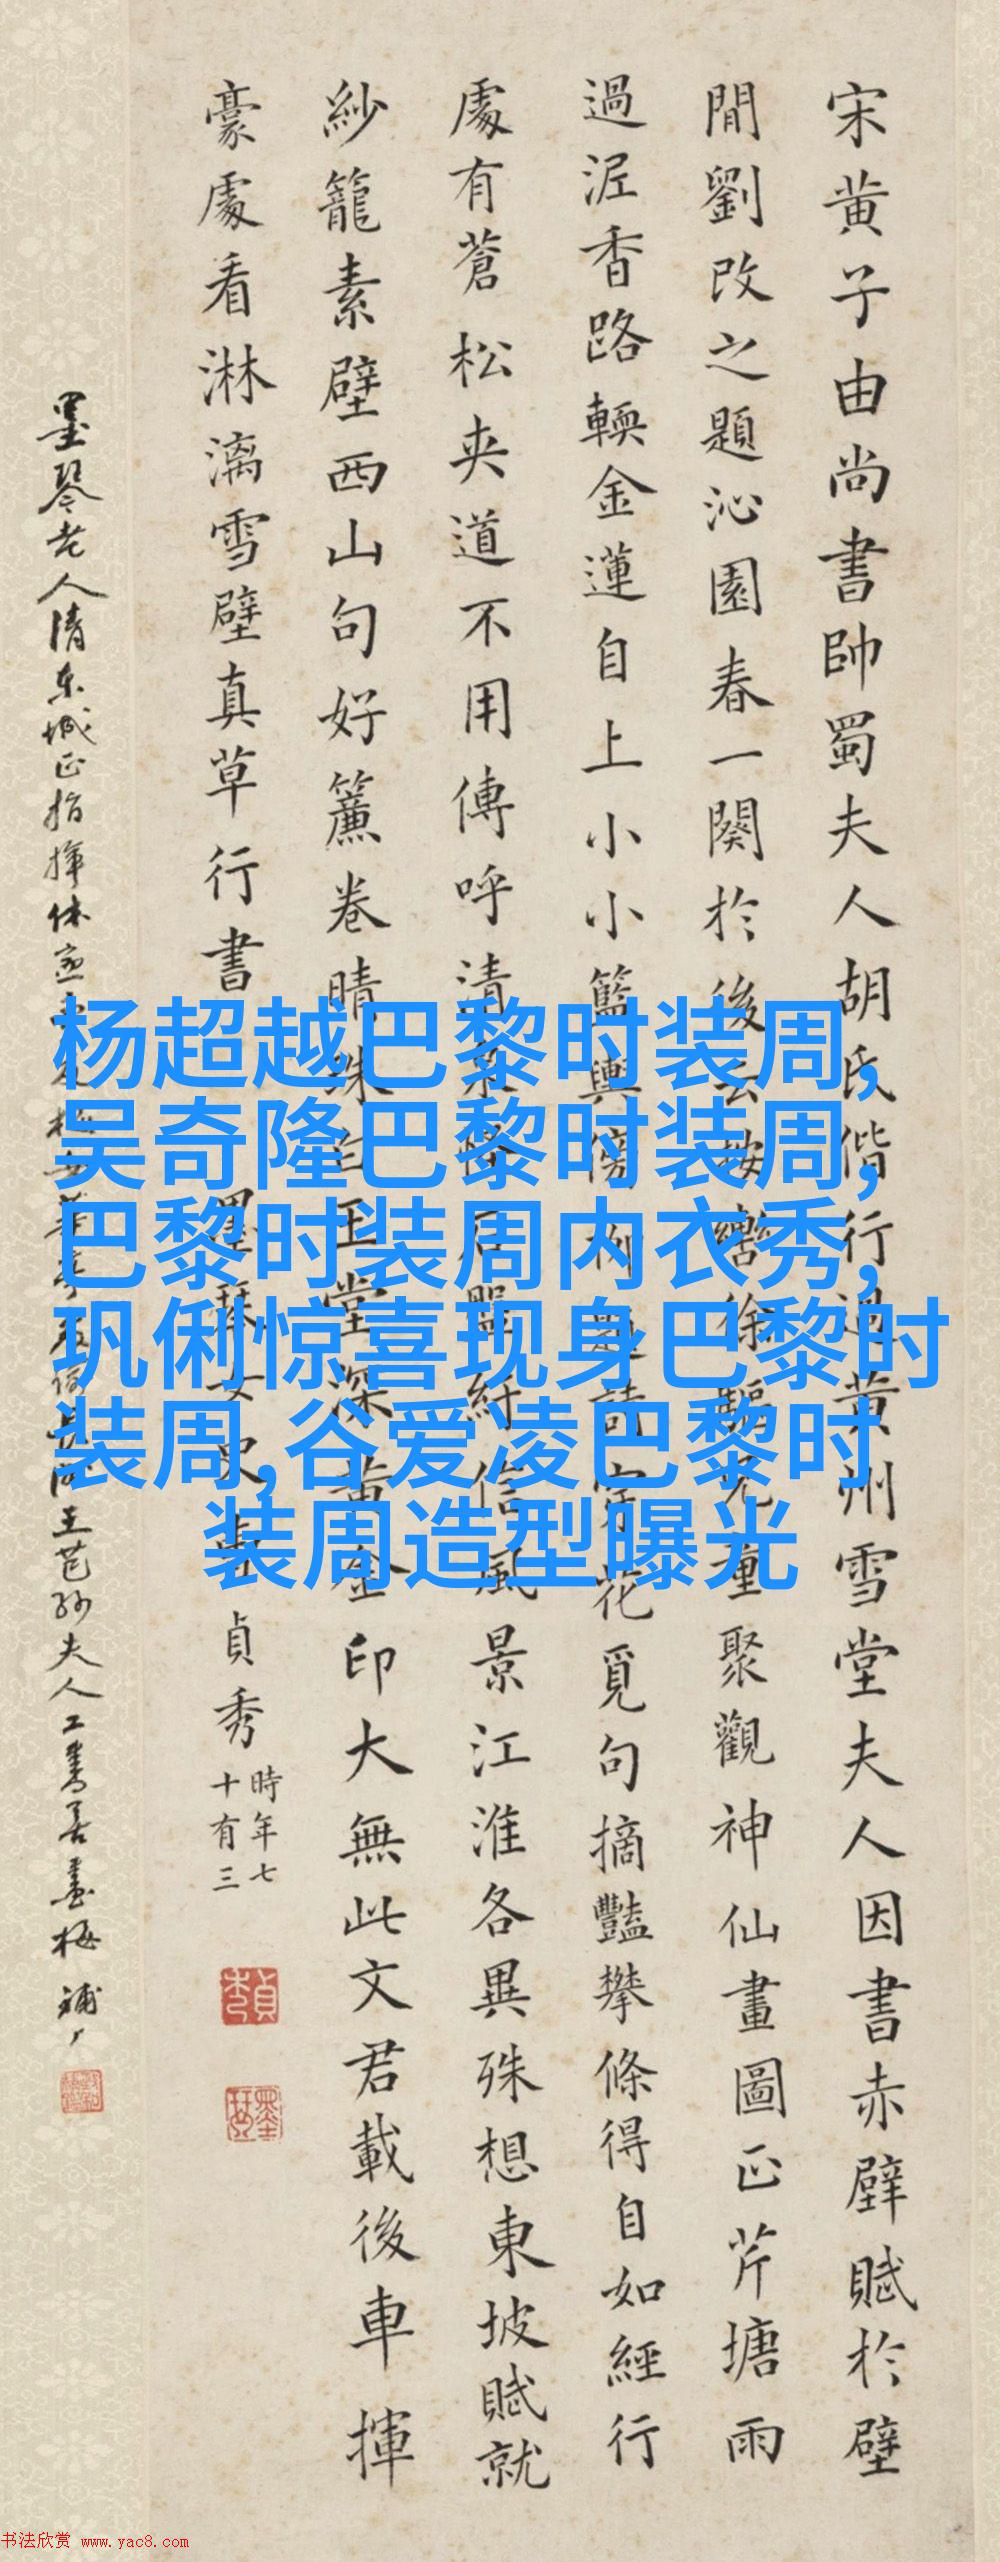 宋黄子由尚書帥蜀夫人胡氏偕行過黄州雪堂夫人因書赤壁賦於壁
間劉改之題沁園春一闋於後云按轡徐驅兒童聚觀神仙畫圖正芹塘雨
過泥香路輭金蓮自上小小籃輿傍柳題詩穿花覓句摘豔攀條得自如經行
處有蒼松夾道不用傳呼清泉怪石盤紆信風景江淮各異殊想東坡賦就
紗籠素壁西山句好簾卷晴珠白玉堂深黄金印大無此文君載後車揮
豪處看淋漓雪壁真草行書
墨琴女史曹貞秀
時年七
十有三
墨琴老人清東城正指揮
王芑孙夫人工書善畫梅
杨超越巴黎时装周,
吴奇隆巴黎时装周,
巴黎时装周内衣秀,
巩俐惊喜现身巴黎时
装周,谷爱凌巴黎时
装周造型曝光
书法欣赏 www.yac8.com